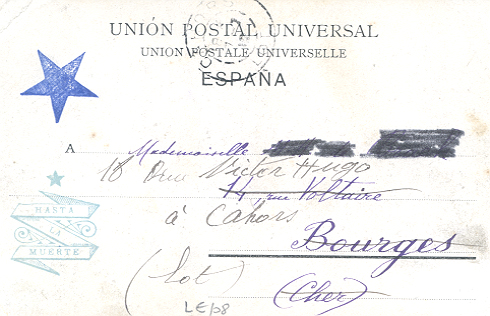 UNIÓN POSTAL UNIVERSAL
UNION POSTALE UNIVERSELLE
ESPAÑA
A Mademoiselle
18 rue Victor Hugo
14, rue Voltaire
à Cahors
Bourges
(Lot)
(Cher)
HASTA
LA
MUERTE